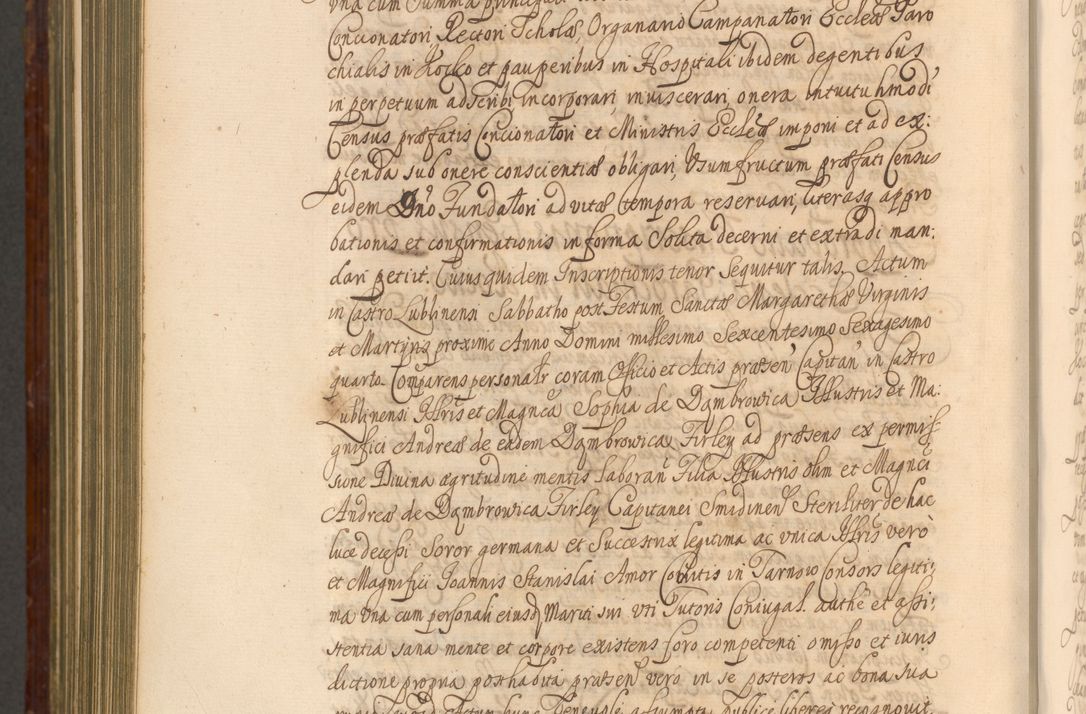 vna cum Summa
Concionatori Rectori Scholæ, Organario Campanatori Eccleæ Paro
chialis in Kocko et pauperibus in Hospitali ibidem degentibus
in perpetuum adscribi, incorporari, inviscerari, onera intuitu hmodi
Census præfatis Concionatori et Ministris Eccleæ imponi et ad ex:
plenda sub onere conscientiæ obligari, Vsumfructum præfati Census
eidem Dno Fundatori ad vitæ tempora reservari, literasq appro
bationis et confirmationis in forma Solita decerni et extradi man:
dari petiit. Cuius quidem Inscriptionis tenor Sequitur talis. Actum
in Castro Lublinensi Sabbatho post Festum Sanctæ Margarethæ Virginis
et Martyris proximo Anno Domini millesimo Sexcentesimo Sexagesimo
quarto. Comparens personalr coram Officio et Actis præsen Capitan in Castro
Lublinensi Jllris et Magnca Sophia de Dąmbrowica Jllustris et Ma:
gnifici Andreæ de eadem Dąmbrowica Firley ad præsens ex permis
sione Divina ægritudine mentis laboran Filia Jllustris olim et Magnci
Andreæ de Dąmbrowica Firley Capitanei Smidinen Steriliter de hac
luce decessi Soror germana et Succestrix legitima ac vnica Jllris verò
et Magnifici Joannis Stanislai Amor Comitis in Tarnow Consors legiti:
ma vna cum personali eiusd Mariti sui vti Tutoris Coniugal. authe et assi:
stentia sana mente et corpore existens foro competenti omisso et iuris
dictione propria posthabita præsen vero in se posteros ac bona sua
hunc assumpta publice libereq recognovit